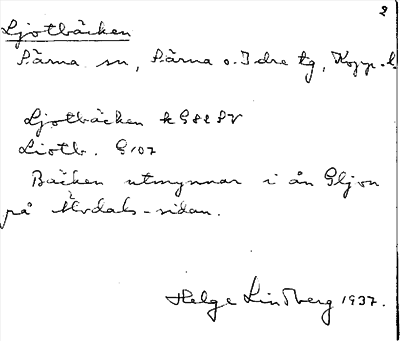 2
Ljotbäcken
Särna sn, Särna o. Idre tg, Kopp. l.
Ljotbäcken k G82 SV
Liotb. G107
Bäcken utmynnar i ån Gljon
på Mordals-sidan.
Helge Lindberg 1937.